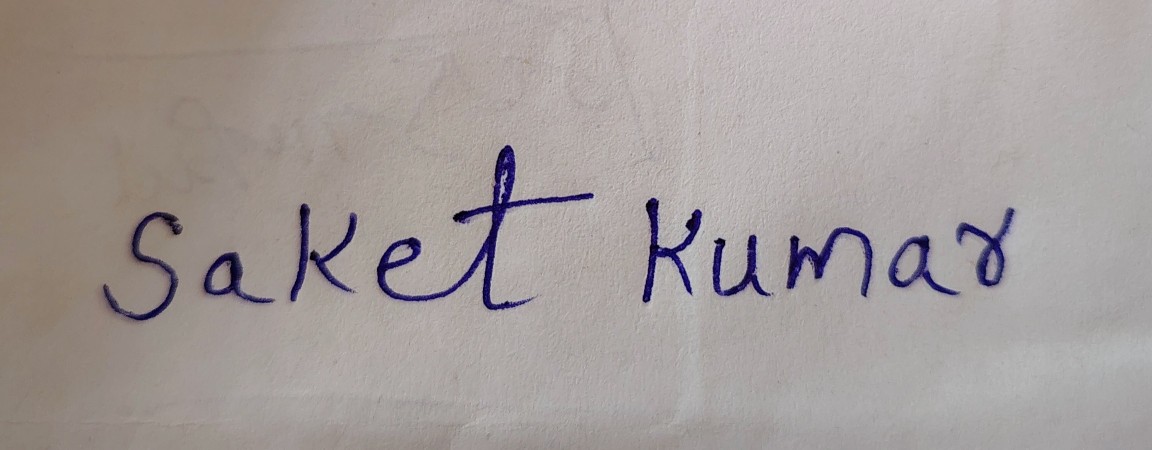 Saket Kumar